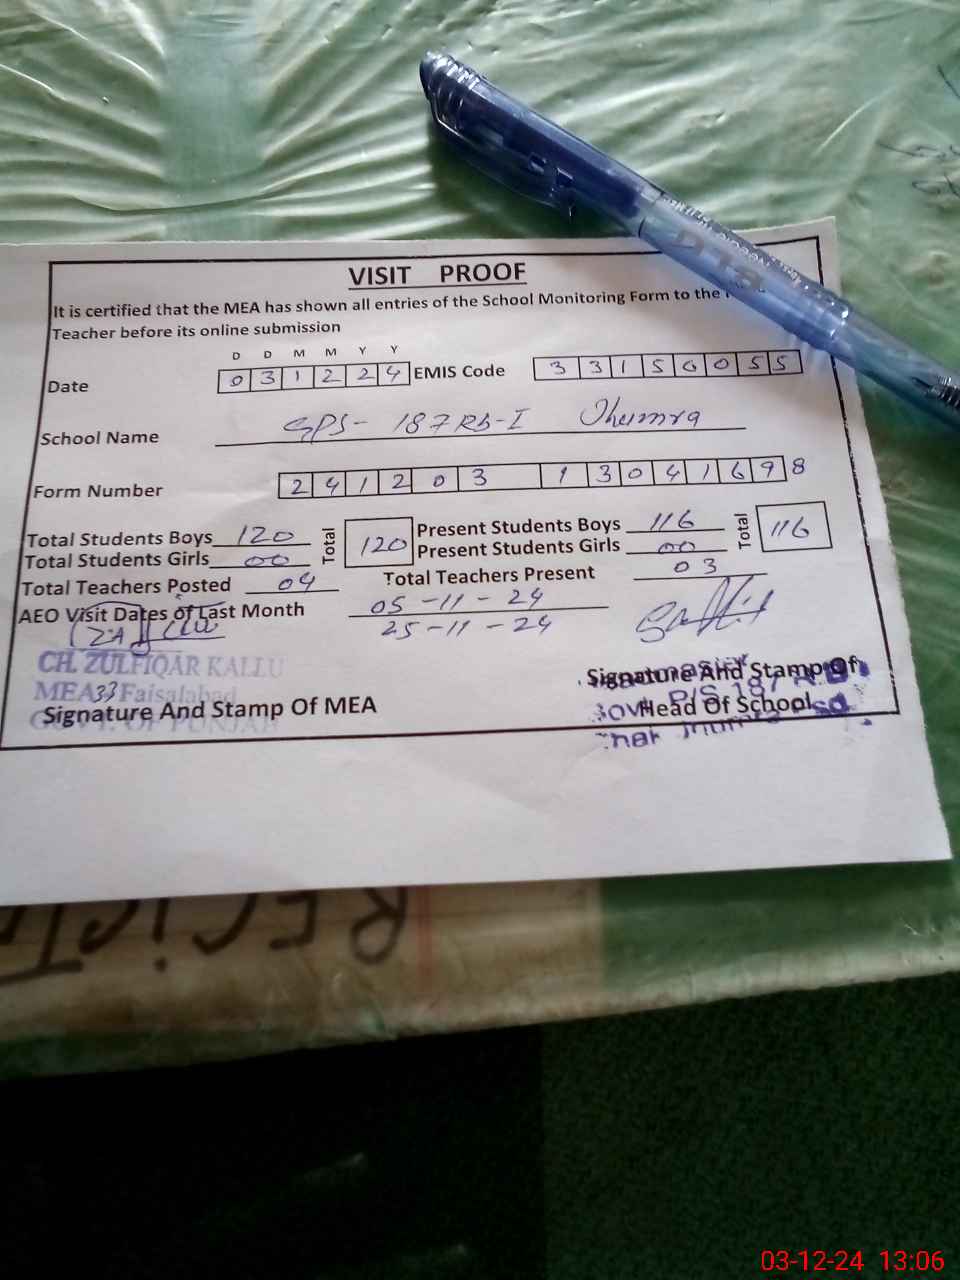 VISIT PROOF
It is certified that the MEA has shown all entries of the School Monitoring Form to the
Teacher before its online submission
D D M M Y Y
Date 0 3 1 2 2 4 EMIS Code 3 3 1 5 0 0 5 5
School Name GPS- 187 RB-I Jhumra
Form Number 2 4 1 2 0 3 1 3 0 4 1 6 9 8
Total Students Boys 120 Total 120 Present Students Boys 116 Total 116
Total Students Girls 00 Present Students Girls 00
Total Teachers Posted 04 Total Teachers Present 03
AEO Visit Dates of Last Month 05-11-24
25-11-24
CH. ZULFIQAR KALLU
MEA 33 Faisalabad
GOVT. OF PUNJAB
Signature And Stamp Of MEA
Signature And Stamp Of
Head Of School
P/S 187
03-12-24 13:06